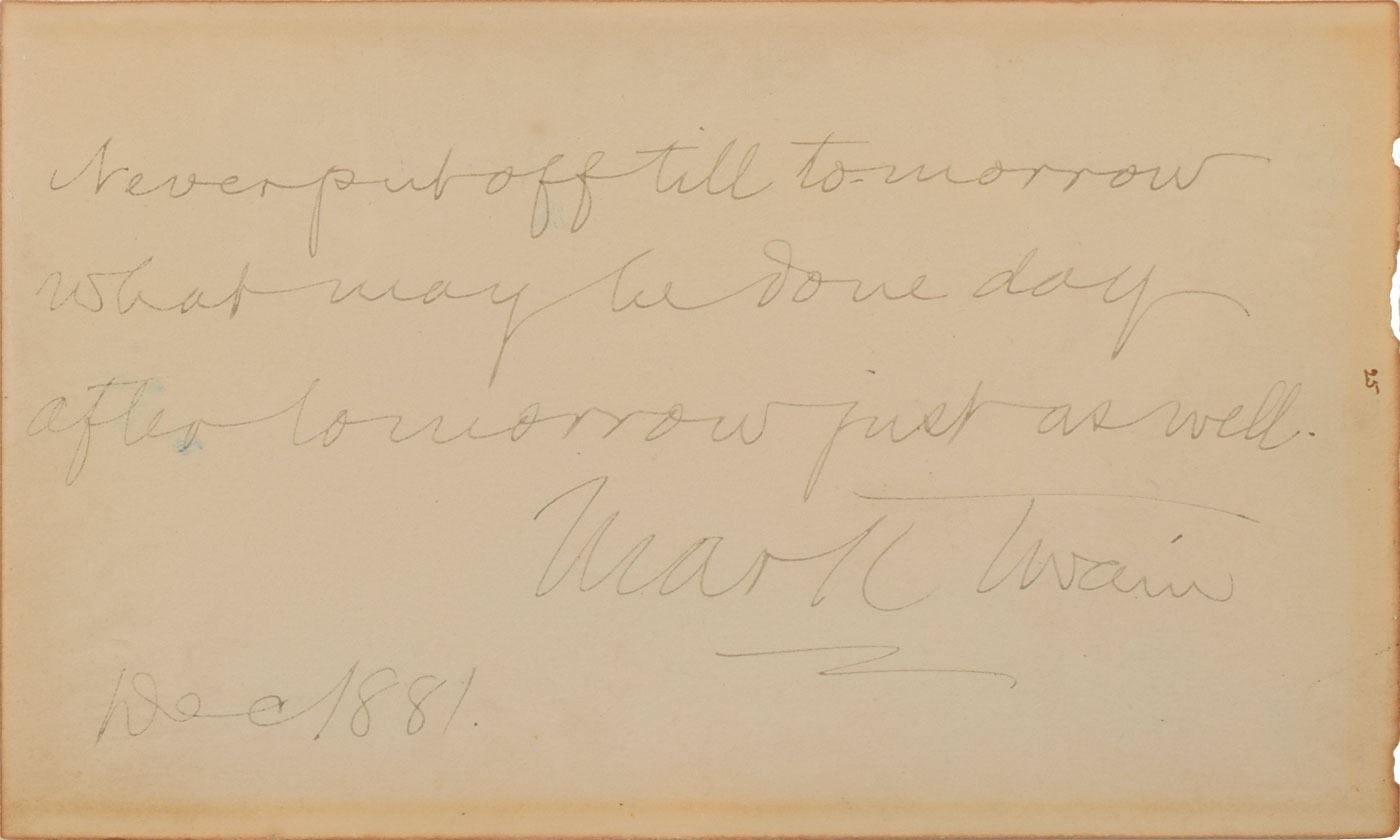 Never put off till to-morrow
what may be done day
after tomorrow just as well.
Mark Twain
Dec 1881.
25